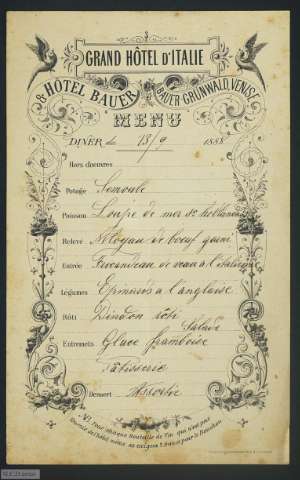 GRAND HÔTEL D'ITALIE
& HÔTEL BAUER
BAUER GRÜNWALD, VENISE
MENU
DINER du 13/9 1888
Hors d'oeuvres
Potage Semoule
Poisson Loupe de mer sce hollandaise
Relevé Aloyau de boeuf garni
Entrée Fricandeau de veau à l'italienne
Légumes Epinards à l'anglaise
Rôti Dindon rôti
Salade
Entremets Glace framboise
Patisserie
Dessert Assortie
NB. Pour chaque Bouteille de Vin qui n'est pas
fournie de l'hôtel même on exigera 2 francs pour le Bouchon